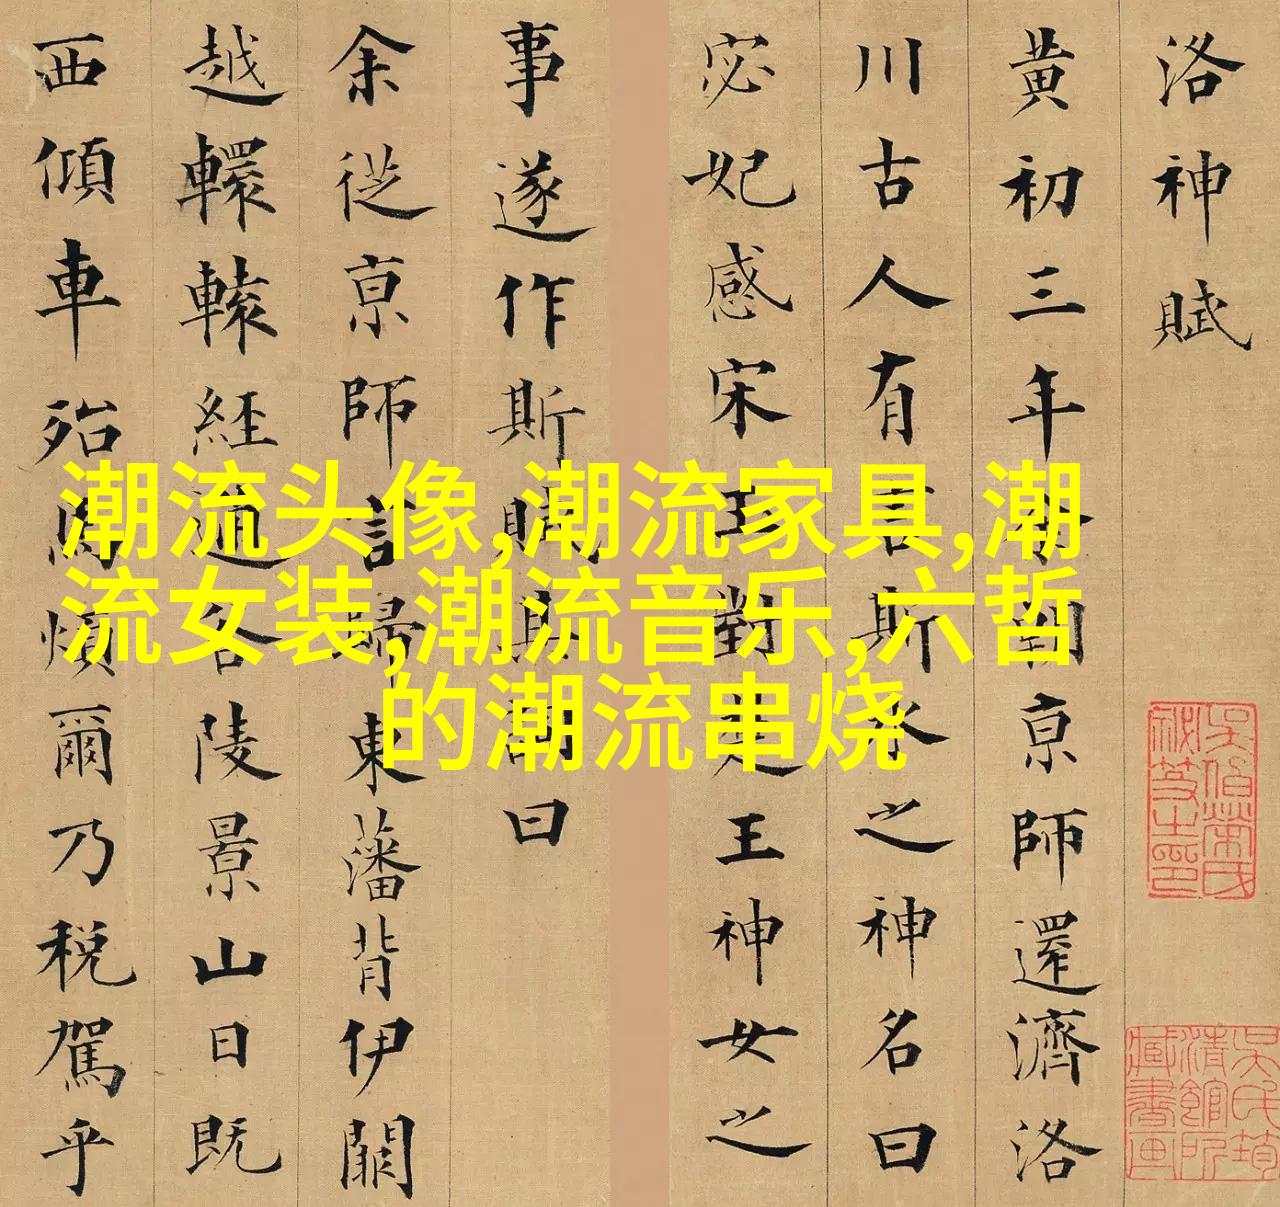 洛神賦
黄初三年余朝京師還濟洛
川古人有言斯水之神名曰
宓妃感宋玉對楚王神女之
事遂作斯賦其詞曰
余從京師言歸東藩背伊闕
越轘轅經通谷陵景山日既
西傾車殆馬煩爾乃税駕乎
潮流头像,潮流家具,潮
流女装,潮流音乐,六哲
的潮流串烧